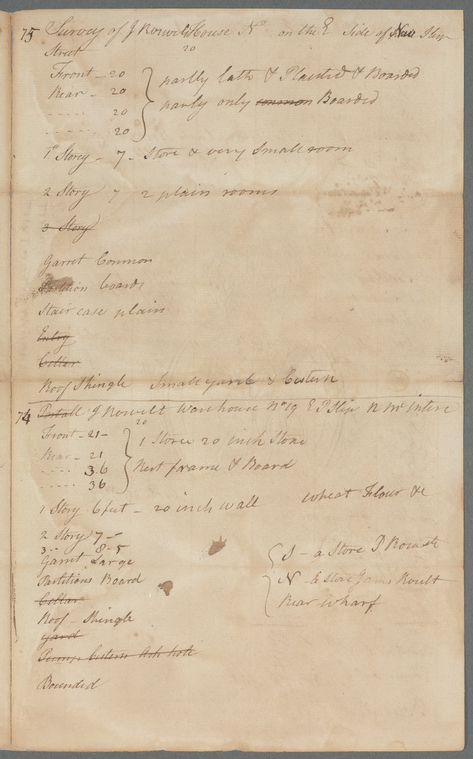 75 Survey of J Rosvelt House No 20 on the E Side of New Slip
Street
Front - 20
Rear - 20
20
20
partly lath & Plasterd & Boarded
partly only common Boarded
1st Storey - 7 - Store & very small room
2 Story 7 2 plain rooms
3 Story
Garret Common
Partition boards
Stair case plain
Entry
Cellar
Roof Shingle Small yard & Cistern
74 J Rosvelt Warehouse No 19 Slip
Front - 21 -
Rear - 21
36
36
20
1 Store 20 inch Stone
Rest frame & Board
1 Story 6 feet - 20 inch wall Wheat Flour &c
2 Story 7 -
3 .. 8-5
Garret Large
Partitions Board
Cellar
Roof - Shingle
Yard
Pump Cistern Ash hole
Bounded
S - a Store
N - a Store James
Rear Wharf